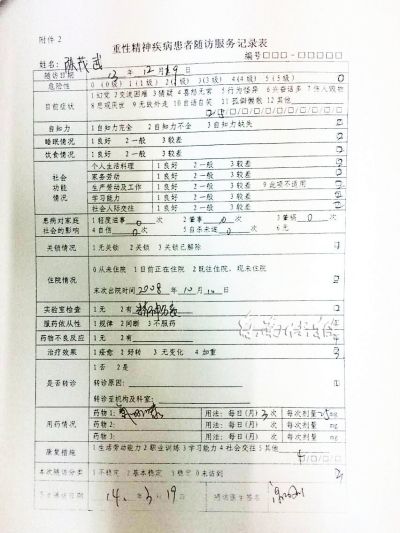 附件 2
重性精神疾病患者随访服务记录表
姓名: 编号□□□-□□□□□
随访日期 13 年 12 月 19 日
危险性 0 (0级) 1 (1级) 2 (2级) 3 (3级) 4 (4级) 5 (5级) 0
目前症状 1 幻觉 2 交流困难 3 猜疑 4 喜怒无常 5 行为怪异 6 兴奋话多 7 伤人毁物
8 悲观厌世 9 无故外走 10 自语自笑 11 孤僻懒散 12 其他
自知力 1 自知力完全 2 自知力不全 3 自知力缺失
睡眠情况 1 良好 2 一般 3 较差
饮食情况 1 良好 2 一般 3 较差
社会功能情况 个人生活料理 1 良好 2 一般 3 较差
家务劳动 1 良好 2 一般 3 较差
生产劳动及工作 1 良好 2 一般 3 较差 9 此项不适用
学习能力 1 良好 2 一般 3 较差
社会人际交往 1 良好 2 一般 3 较差
患病对家庭社会的影响 1 轻度滋事 0 次 2 肇事 0 次 3 肇祸 0 次
4 自伤 0 次 5 自杀未遂 0 次 6 无
关锁情况 1 无关锁 2 关锁 3 关锁已解除
住院情况 0 从未住院 1 目前正在住院 2 既往住院,现未住院
末次出院时间 2008 年 10 月 10 日
实验室检查 1 无 2 有
服药依从性 1 规律 2 间断 3 不服药
药物不良反应 1 无 2 有
治疗效果 1 痊愈 2 好转 3 无变化 4 加重 3
是否转诊 1 否 2 是
转诊原因:
转诊至机构及科室:
用药情况 药物 1: 用法: 每日(月) 3 次 每次剂量 25 mg
药物 2: 用法: 每日(月) 次 每次剂量 mg
药物 3: 用法: 每日(月) 次 每次剂量 mg
康复措施 1 生活劳动能力 2 职业训练 3 学习能力 4 社会交往 5 其他
4
本次随访分类 1 不稳定 2 基本稳定 3 稳定 0 未访到
14. 3 月 19 日 随访医生签名